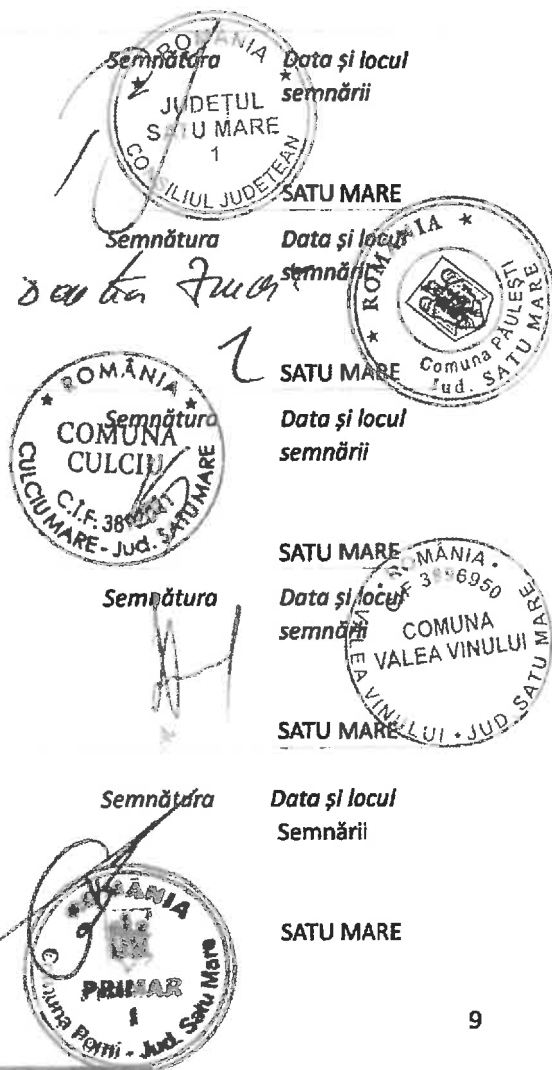 ROMÂNIA
Semnătura Data și locul
semnării
JUDEȚUL
SATU MARE
1
CONSILIUL JUDEȚEAN
SATU MARE
Semnătura Data și locul
semnării
ROMÂNIA
Comuna PĂULEȘTI
Jud. SATU MARE
SATU MARE
ROMÂNIA
Semnătura Data și locul
semnării
COMUNA
CULCIU
C.I.F.
CULCIU MARE - Jud. SATU MARE
SATU MARE
ROMÂNIA
Semnătura Data și locul
semnării
CIF
COMUNA
VALEA VINULUI
VALEA VINULUI • JUD. SATU MARE
SATU MARE
Semnătura Data și locul
Semnării
ROMÂNIA
PRIMAR
Comuna Pomi - Jud. Satu Mare
SATU MARE
9